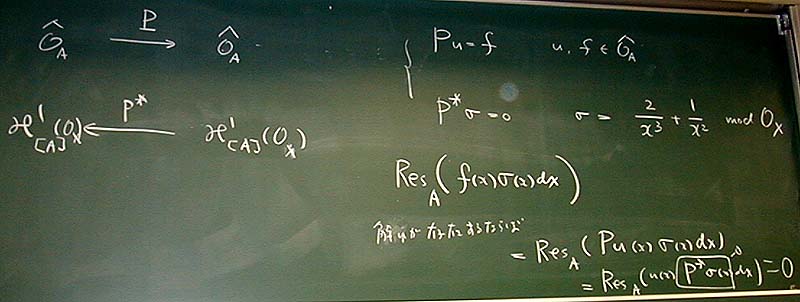 Ô_A →^P Ô_A
H^1_{[A]}(O_X) ←^{P*} H^1_{[A]}(O_X)
{ Pu = f    u, f ∈ Ô_A
P*σ = 0    σ = 2/x³ + 1/x² mod O_X
Res_A ( f(x)σ(x)dx )
解 u が
= Res_A ( Pu(x) σ(x)dx )
= Res_A ( u(x) P*σ(x) dx ) = 0
0